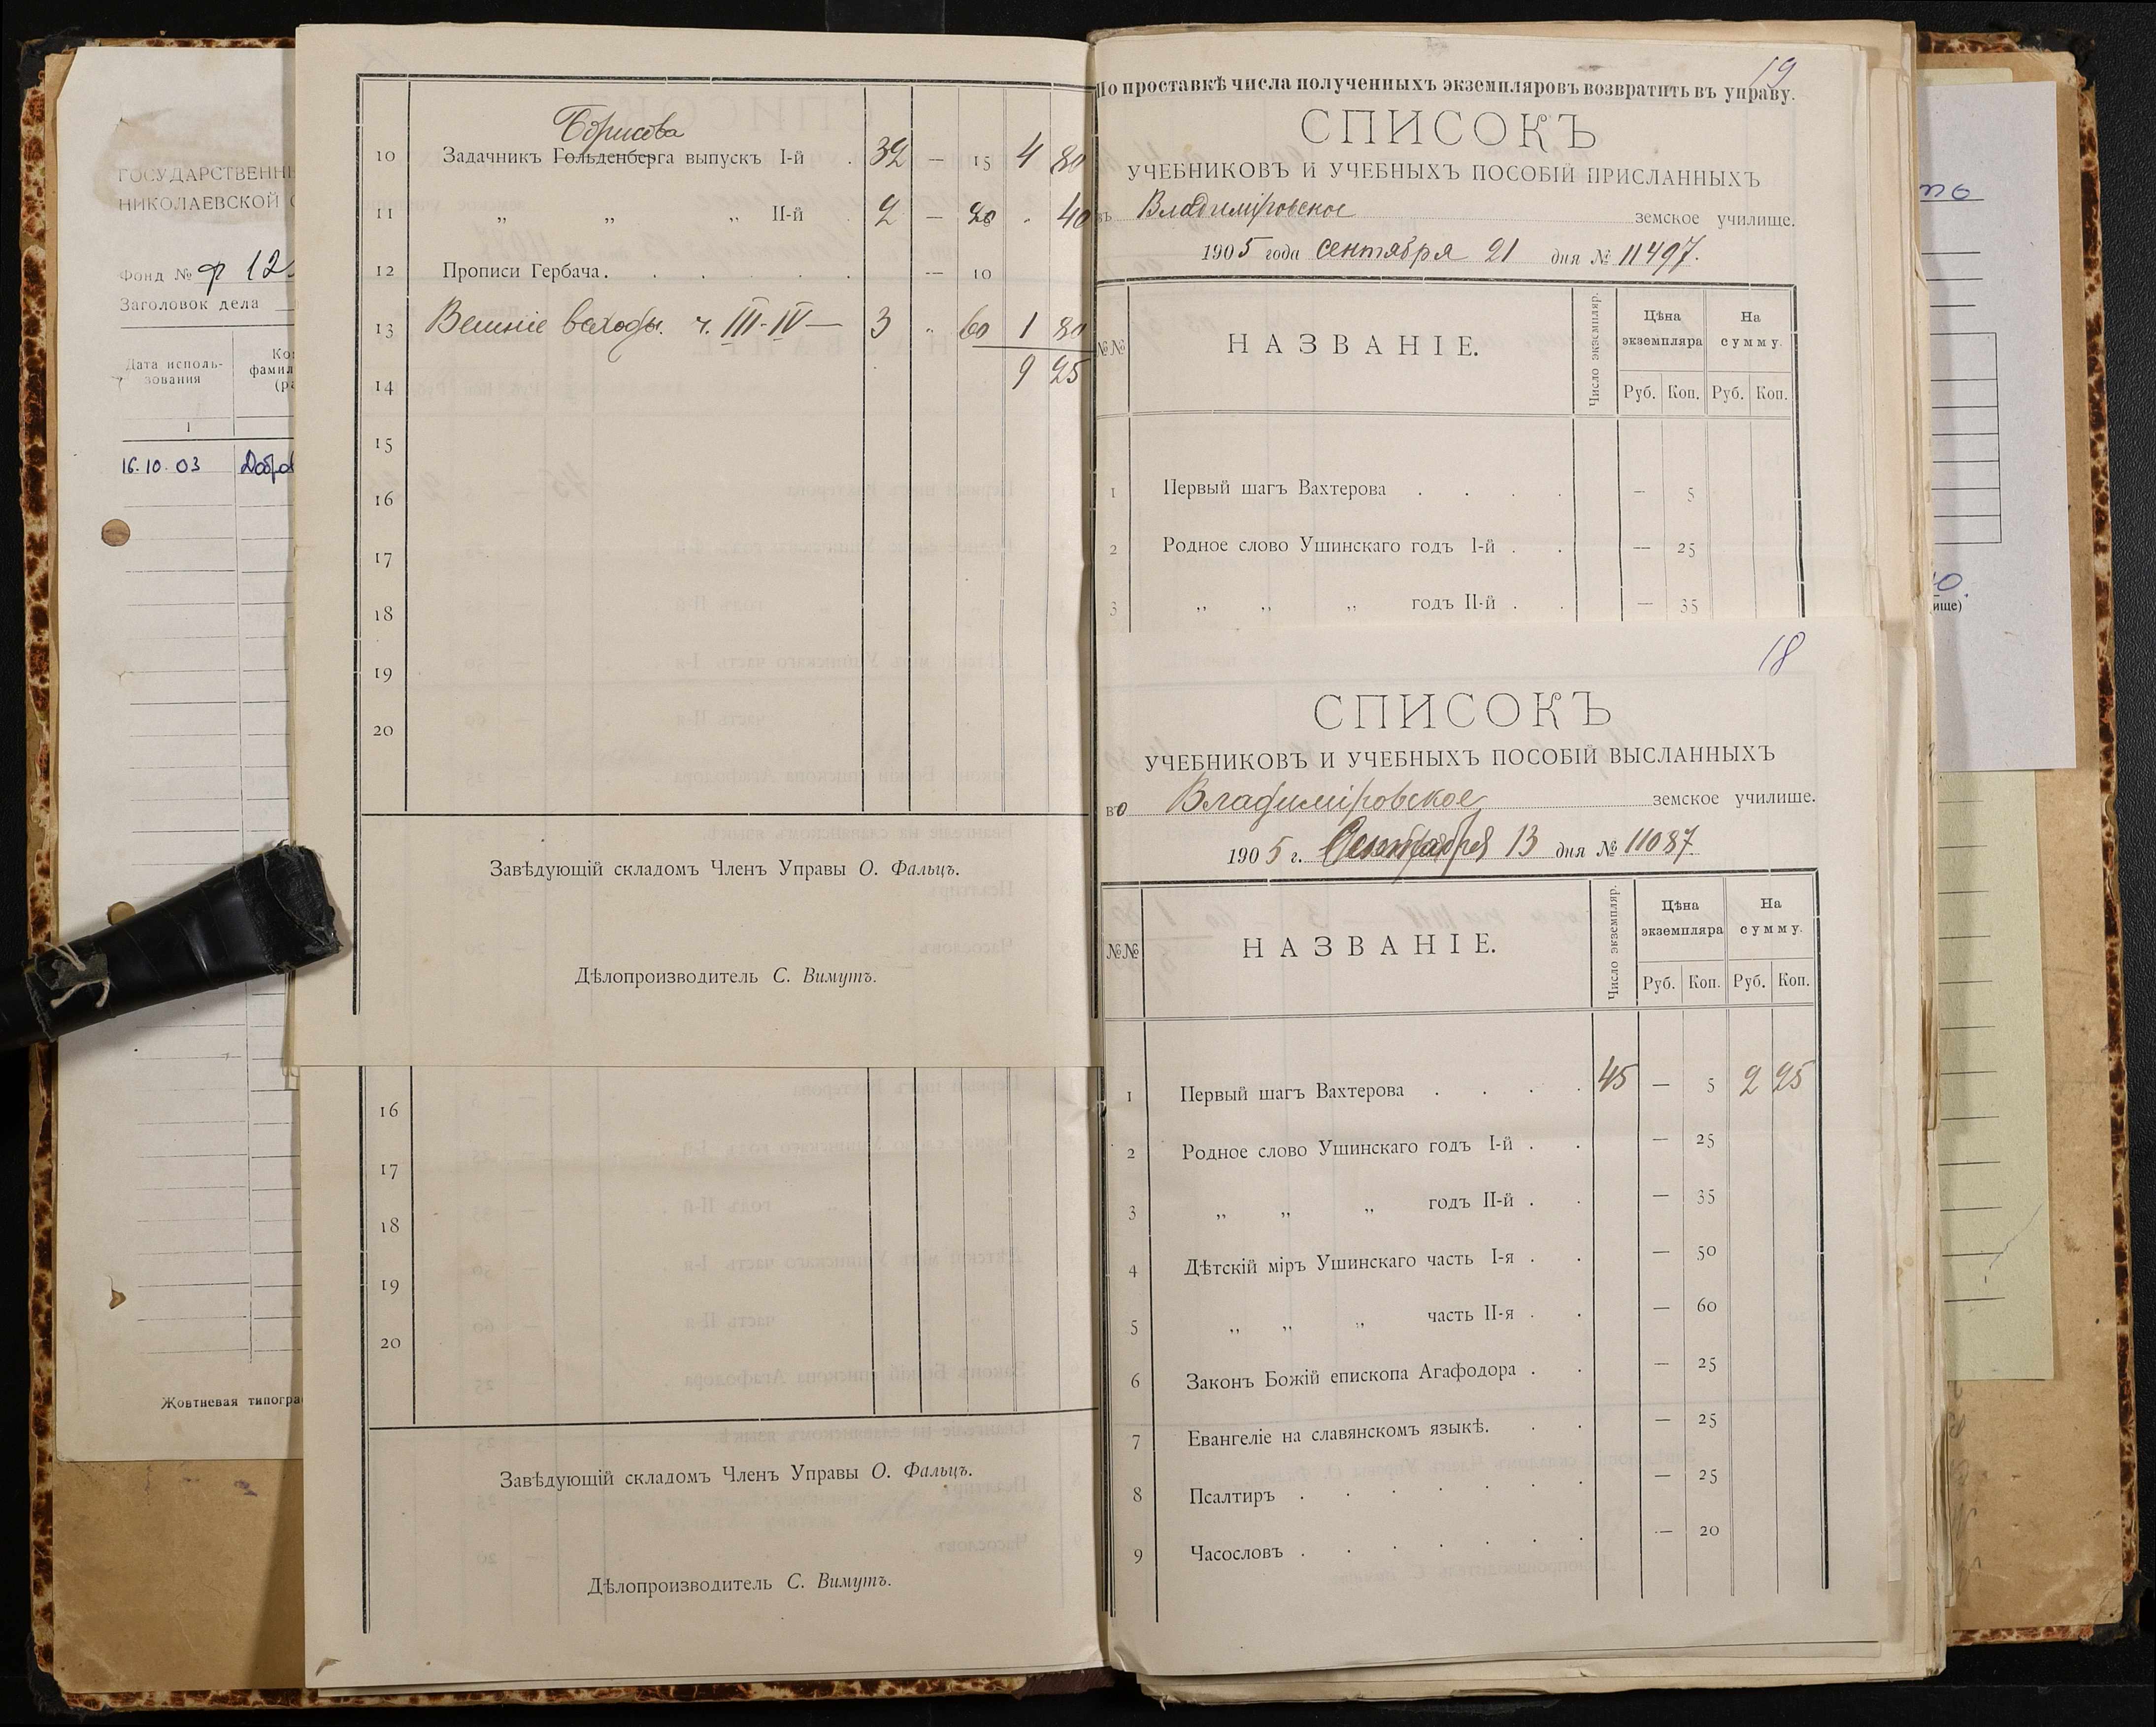 ГОСУДАРСТВЕНН
НИКОЛАЕВСКОЙ
Фонд № ф 12
Заголовок дела
Дата исполь-
зования
1
16.10.03
Жовтневая типогра
Борисова
10 Задачникъ Гольденберга выпускъ I-й . 32 — 15 4 80
11 „ „ „ II-й . 2 — 20 . 40
12 Прописи Гербача . . . . . . — 10
13 Вешніе всходы. ч. III-IV — 3 „ 60 1 80
14 9 25
15
16
17
18
19
20
Завѣдующій складомъ Членъ Управы О. Фальцъ.
Дѣлопроизводитель С. Вимутъ.
16
17
18
19
20
Завѣдующій складомъ Членъ Управы О. Фальцъ.
Дѣлопроизводитель С. Вимутъ.
19
По проставкѣ числа полученныхъ экземпляровъ возвратить въ управу.
СПИСОКЪ
УЧЕБНИКОВЪ И УЧЕБНЫХЪ ПОСОБІЙ ПРИСЛАННЫХЪ
въ Владиміровское земское училище.
1905 года сентября 21 дня № 11497.
№№ НАЗВАНІЕ. Число экземпляр. Цѣна экземпляра На сумму.
Руб. Коп. Руб. Коп.
1 Первый шагъ Вахтерова . . . . — 5
2 Родное слово Ушинскаго годъ I-й . . — 25
3 „ „ „ годъ II-й . . — 35
18
СПИСОКЪ
УЧЕБНИКОВЪ И УЧЕБНЫХЪ ПОСОБІЙ ВЫСЛАННЫХЪ
во Владиміровское земское училище.
1905 г. Сентября 13 дня № 11087
№№ НАЗВАНІЕ. Число экземпляр. Цѣна экземпляра На сумму.
Руб. Коп. Руб. Коп.
1 Первый шагъ Вахтерова . . . . 45 — 5 2 25
2 Родное слово Ушинскаго годъ I-й . . — 25
3 „ „ „ годъ II-й . . — 35
4 Дѣтскій міръ Ушинскаго часть I-я . . — 50
5 „ „ „ часть II-я . . — 60
6 Законъ Божій епископа Агафодора . . — 25
7 Евангеліе на славянскомъ языкѣ. . . — 25
8 Псалтиръ . . . . . . . — 25
9 Часословъ . . . . . . . — 20